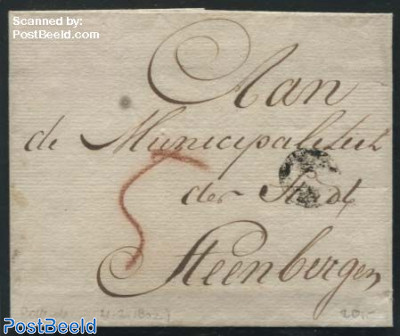 Scanned by:
PostBeeld.com
Aan
de Municipaliteit
der Stadt
Steenbergen
5
21-2-1802
20,-
PostBeeld.com